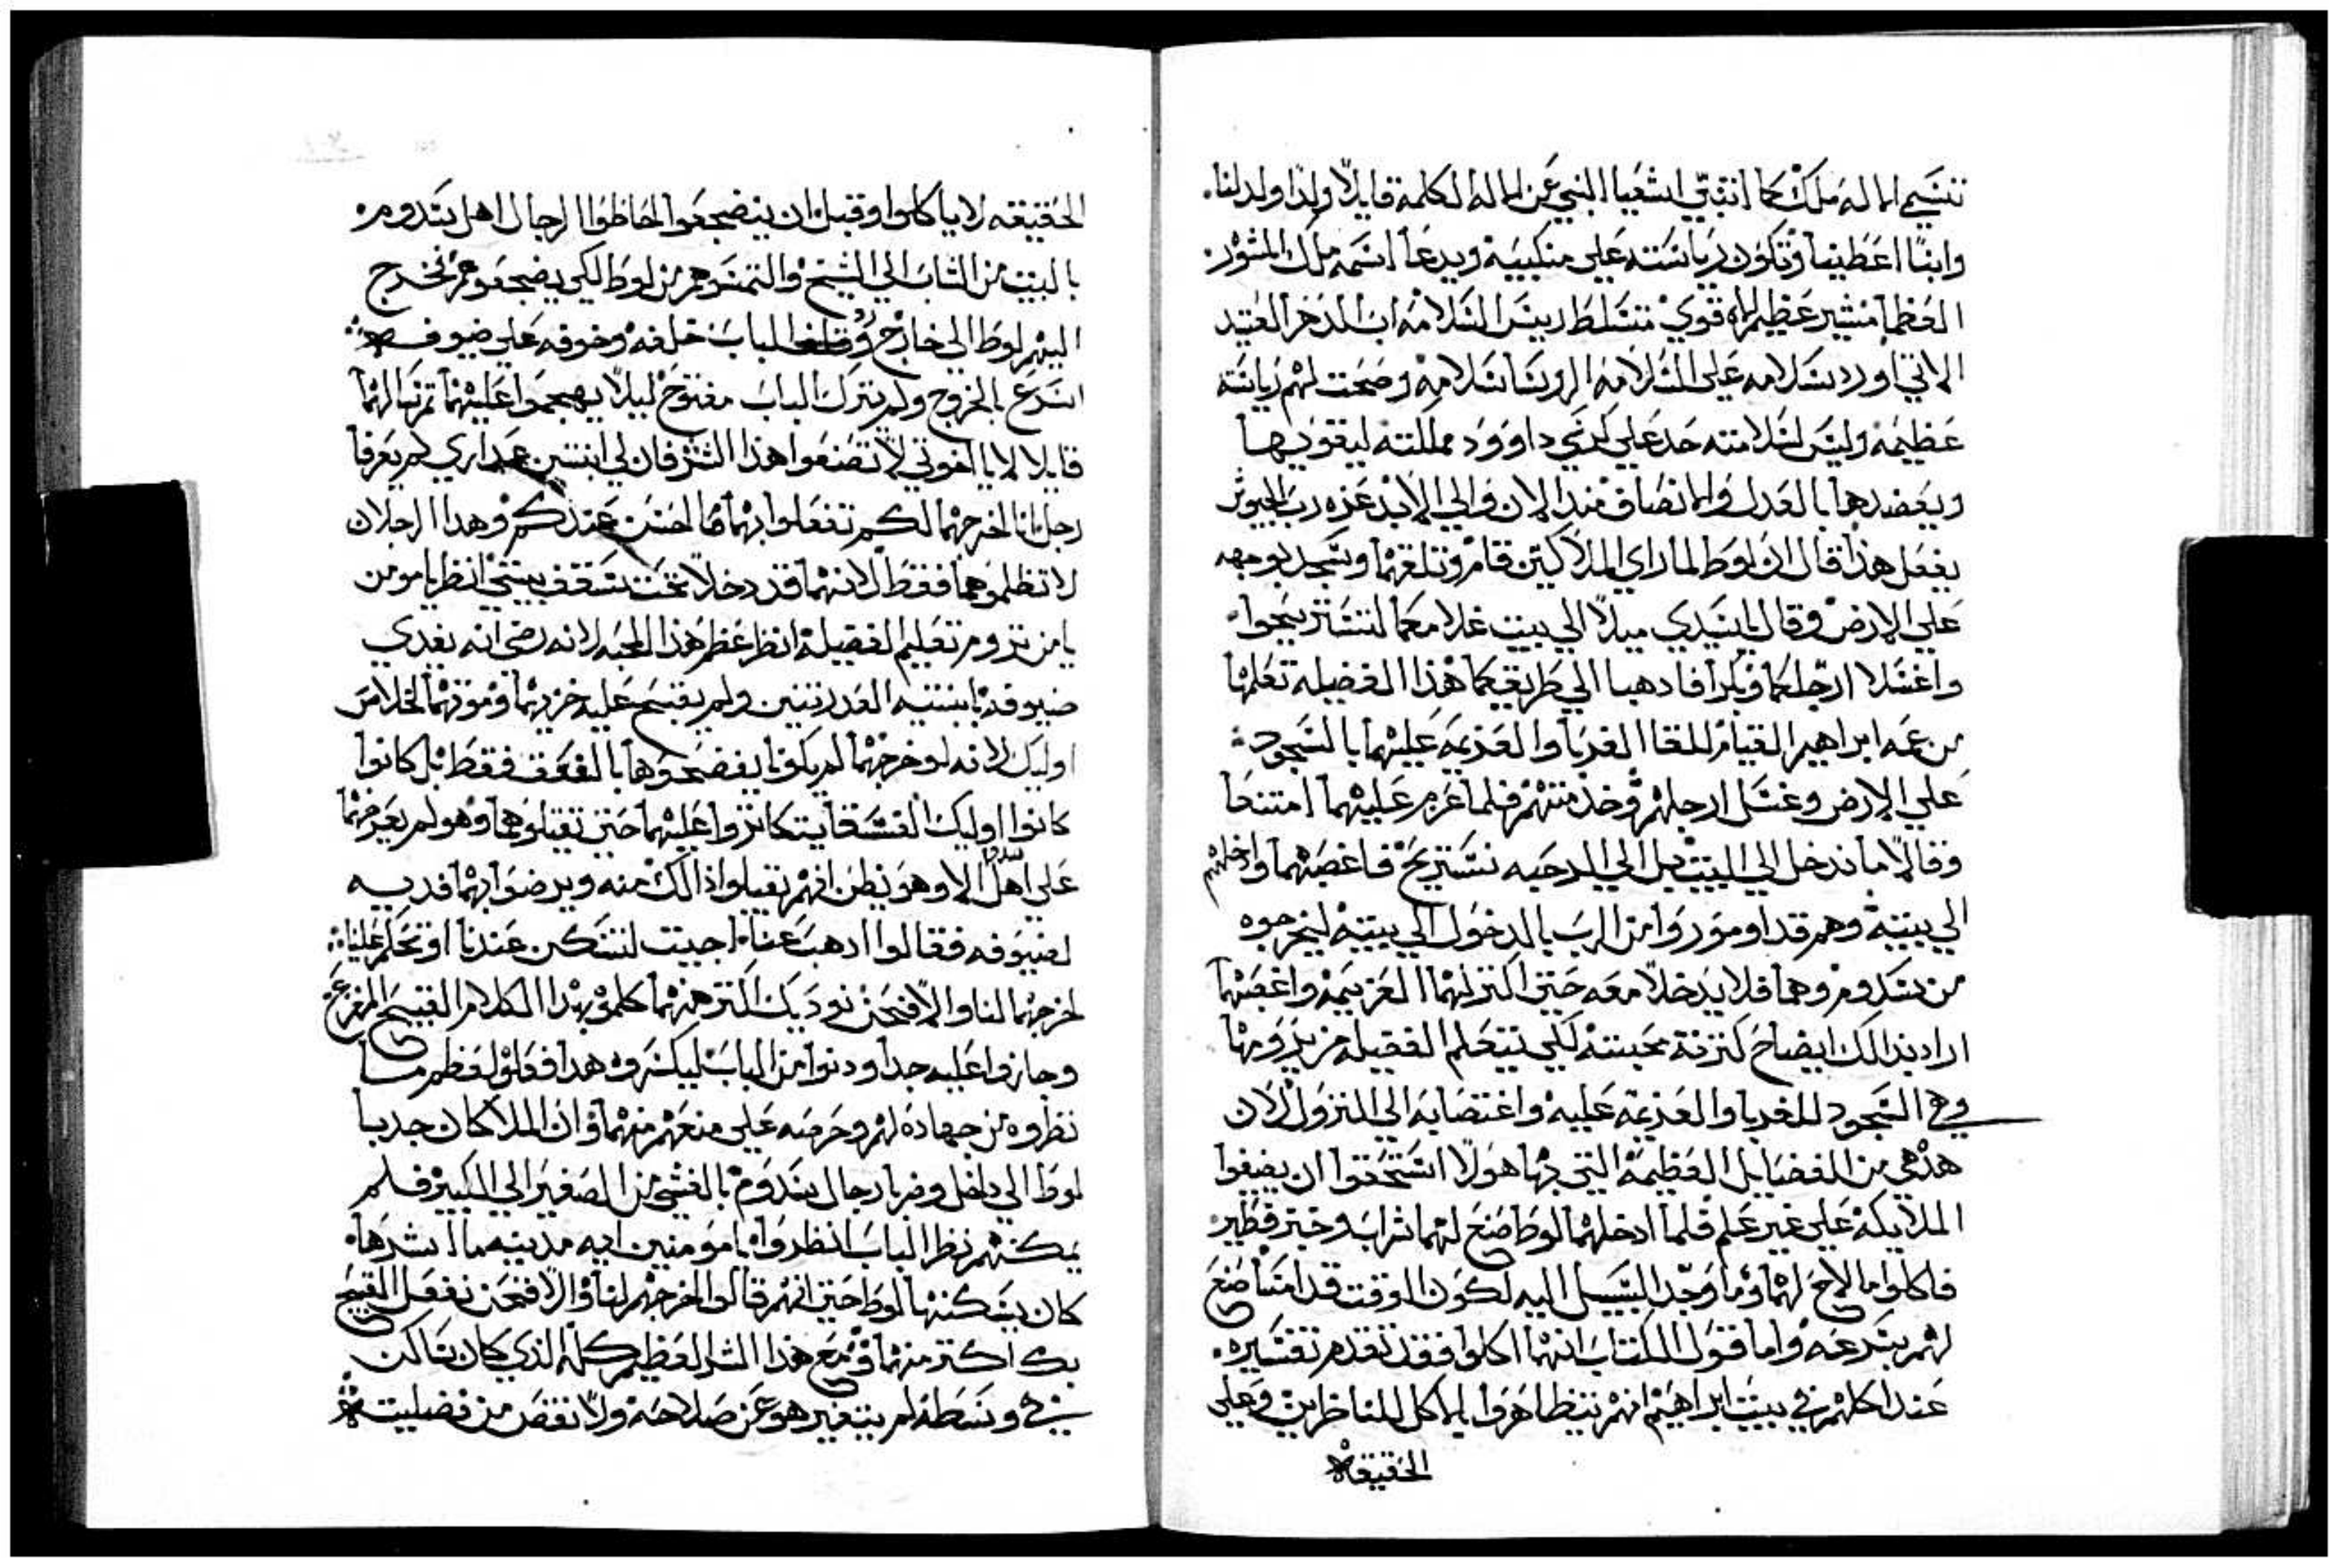 تتسمي الاله ملك كما انتبي اشعيا النبي عن الاله الكلمة قايلًا ولدًا ولد لنا
وابنًا اعطينا وتكون رياسته علي منكبيه ويدعا اسمه ملك المشور
العظما مشير عظيم الاه قوي متسلط رييس السلامه اب الدهر العتيد
الاتي اورد سلامه علي السلامه الروسا سلامه وصحت لهم رياسته
عظيمه وليس لسلامته حد علي كرسي داوود مملكته ليقويها
ويعضدها بالعدل والانصاف منذ الان والي الابد عزه رب الجيوش
يفعل هذا قال ان لوط لما راي الملاكين قام وتلقهما وسجد بوجهه
علي الارض وقال يا سيدي ميلاً الي بيت غلامكما لتستريحوا
واغسلا ارجلكما وبكرا فادهبا الي طريقكما هذا الفضيله تعلمها
من عمه ابراهيم القيام للقا الغربا والعزيمه عليهما بالسجود
علي الارض وغسل ارجلهم وخدمتهم فلما عزم عليهما امتنعا
وقالا ما ندخل الي البيت بل الي الرحبه نستريح فاغصبهما وادخلهم
الي بيته وهم قد اومروا من الرب بالدخول الي بيته ليخرجوه
من سدوم وهما فلا يدخلا معه حتي اكتر لهما العزيمه واغصبهما
اراد بدالك ايضاح كترة محبته لكي يتعلم الفضيله من يرومها
وفي السجود للغربا والعزيمه عليه واغتصابه الي النزول لان
هذه هي من الفضايل العظيمة التي بها هولا استحقوا ان يضيفوا
الملايكه علي غير علم فلما ادخلهما لوط صنع لهما شراب وخبز فطير
فاكلوا ما لاح لهما وما وجد السبيل اليه لكون الوقت قد امسا صنع
لهم بسرعه واما قول الكتاب انهما اكلوا فقد تقدم تفسيره
عند اكلهم في بيت ابراهيم انهم تتظاهروا بالاكل للناظرين وعلي
الحقيقه
الحقيقه لا ياكلوا وقبل ان ينضجعوا احاطوا الرجال اهل سدوم
بالبيت من الشاب الي الشيخ والتمسوهم من لوط لكي يضجعوهم فخرج
اليهم لوط الي خارج الباب خلفه وخوفه علي ضيوفه
اسرع بالخروج ولم يترك الباب مفتوح ليلا يهجموا عليهما
قايلا لا يا اخوتي لا تصنعوا هذا الشر فان لي ابنتين عداري لم يعرفا
رجل انا اخرجهما لكم تفعلوا بهما ما احسن عندكم وهدا الرجلان
لا تظلموهما فقط لانهما قد دخلا تحت سقف بيتي انظر يا مومن
يا من تروم تعليم الفضيله انظر عظم هذا المحبه لانه رضي انه يفدي
ضيوفه بابنتيه العدرتين ولم يقبح عليه خزيهما وموتهما لخلاص
اوليك لانه لو خرجهما لم يكونا يفضحوهما بالفعل فقط بل كانوا
كانوا اوليك الفسقا يتكاتروا عليهما حتي تقتلوهما وهو لم يعرضهما
علي اهل الا وهو يظن انهم يقبلوا ذالك منه ويرضوا بهما فديه
لضيوفه فقالوا ادهب عنا اجيت لتسكن عندنا او تحكم علينا
اخرجهما لنا والا فنحن نوديك اكتر منهما كلموه بهدا الكلام القبيح المفزع
وجازوا عليه جدا ودنوا من الباب ليكسروه هدا فعلوا لعظم ما
نظروه من جهاده لهم وحرصه علي منعهم منهما وان الملاكان جدبا
لوط الي داخل وضربا رجال سدوم بالغشي من الصغير الي الكبير فلم
يمكنهم نظر الباب انظروا يا مومنين ايه مدينه ما اشرها
كان يسكنها لوط حتي انهم قالوا اخرجهم لنا والا فنحن نفعل القبيح
بك اكتر منهما ومع هذا الشر العظيم كله الذي كان ساكن
في وسطه لم يتغير هو عن صلاحه ولا نقص من فضليته